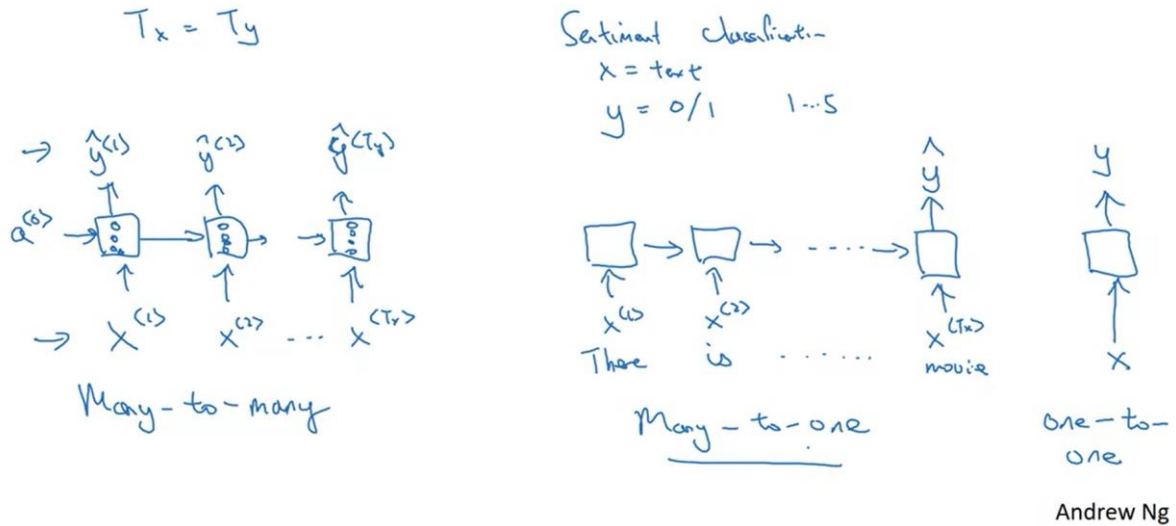 Tx = Ty
ŷ<1> ŷ<2> ŷ<Ty>
a<0>
x<1> x<2> ... x<Tx>
Many-to-many
Sentiment classification
x = text
y = 0/1 1...5
ŷ
x<1> x<2> x<Tx>
There is ........ movie
Many-to-one
y
x
one-to-
one
Andrew Ng